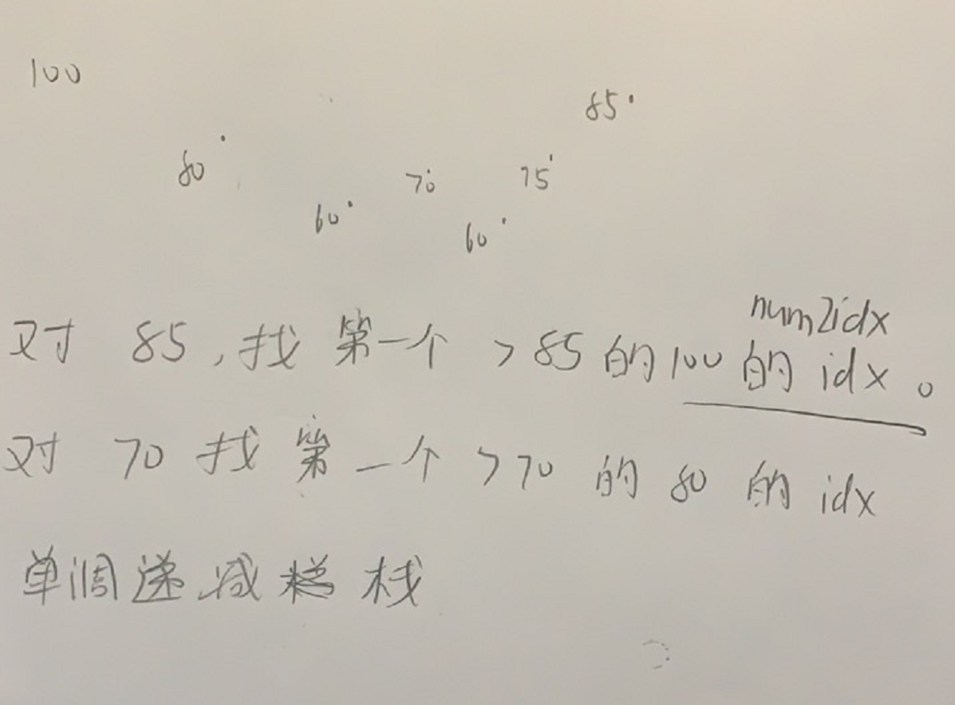 100
85
80
70
75
60
60
num2idx
对 85,找 第一个 >85 的 100 的 idx。
对 70 找 第一个 >70 的 80 的 idx
单调递减 栈